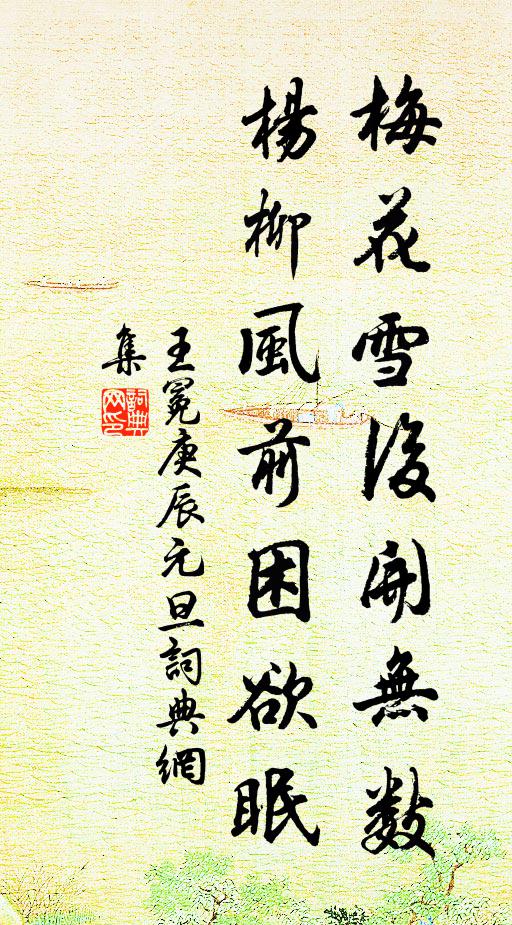 梅花雪後開無數
楊柳風前困欲眠
王冕庚辰元旦詞典網
集
詞典
网印